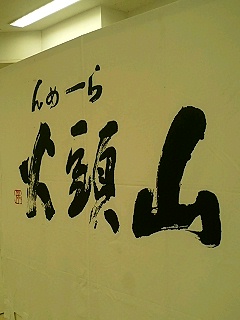 らーめん
山頭火